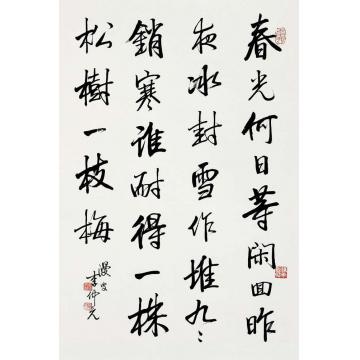 春光何日等闲回昨
夜冰封雪作堆九〻
銷寒谁耐得一株
松樹一枝梅
漫叟
李仲元